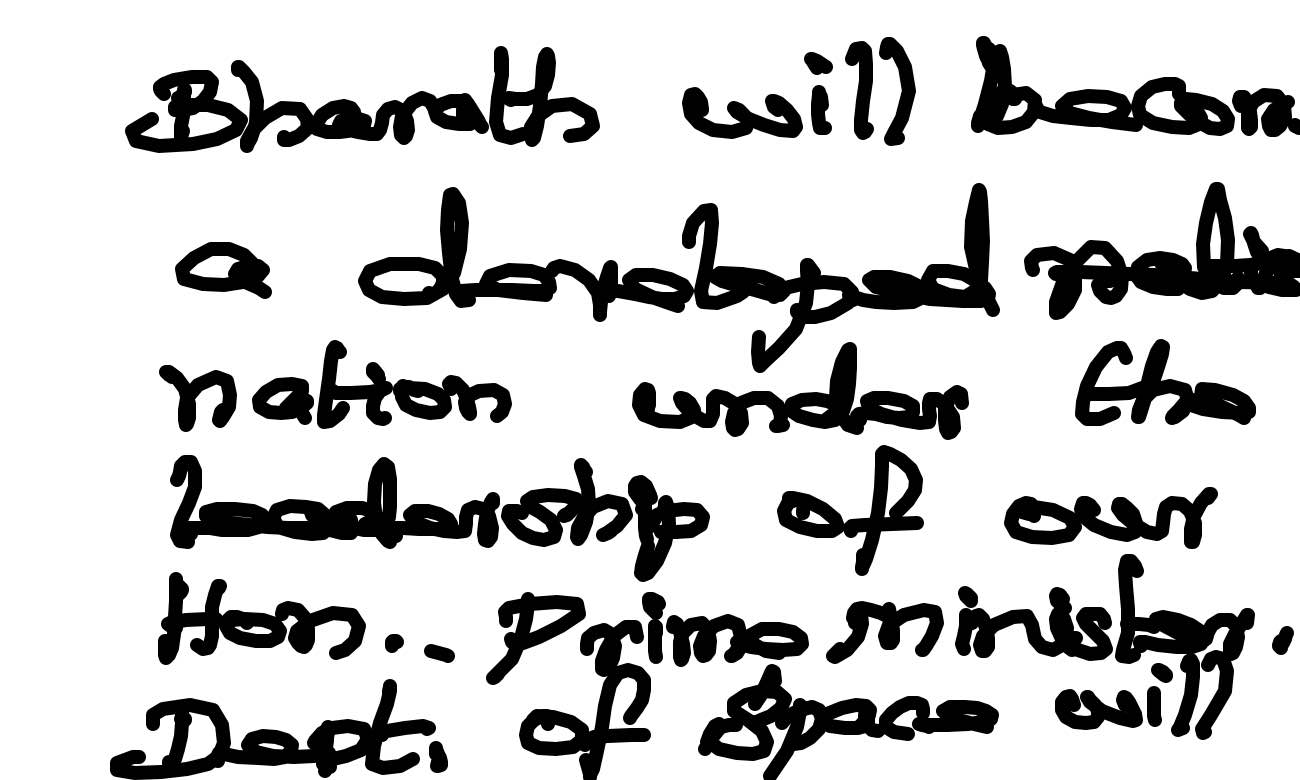 Bharath will becom
a developed
nation under the
leadership of our
Hon.. Prime minister.
Dept. of space will